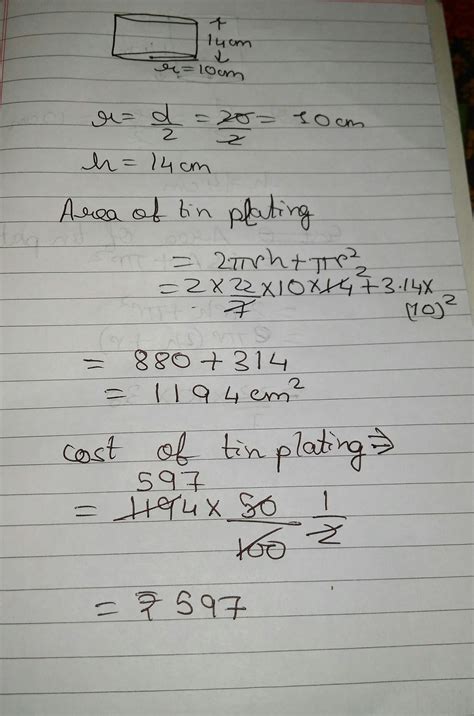 14cm
r=10cm
r = d/2 = 20/2 = 10cm
h = 14cm
Area of tin plating
= 2πrh + πr²
= 2 × 22/7 × 10 × 14 2 + 3.14 × (10)²
= 880 + 314
= 1194 cm²
cost of tin plating ⇒
597
= 1194 × 50/100 1/2
= ₹ 597